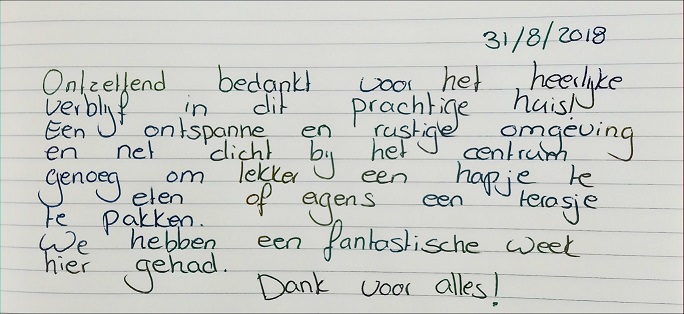 31/8/2018
Ontzettend bedankt voor het heerlijke
verblijf in dit prachtige huis!
Een ontspanne en rustige omgeving
en net dicht bij het centrum
genoeg om lekker een hapje te
eten of ergens een terasje
te pakken.
We hebben een fantastische week
hier gehad.
Dank voor alles!